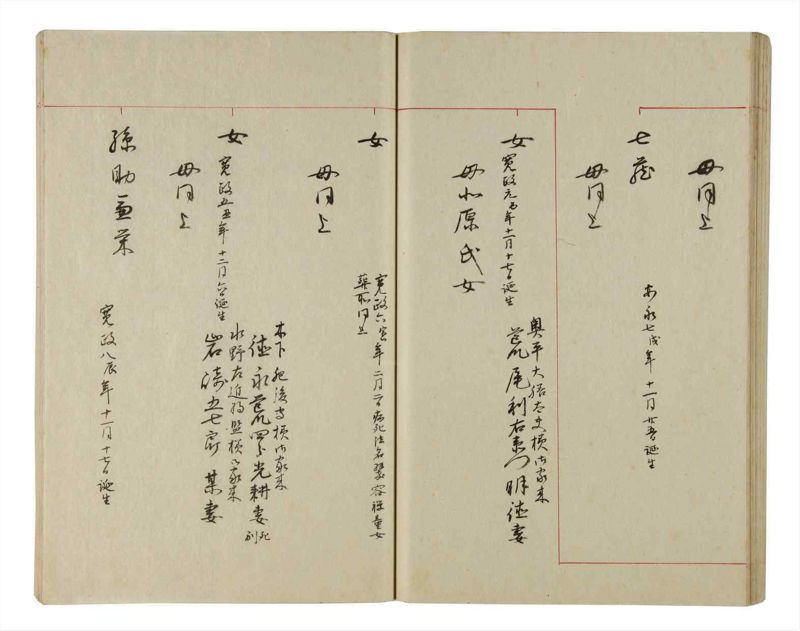 母同上
七蔵
安永七戌年十一月廿五日誕生
母同上
女 寛政元酉年十一月十七日誕生
奥平大膳太夫様御家来
荒尾利右衛門明徳妻
母小原氏女
女
寛政六寅年二月二日病死法名翠容禅童女
葬所同上
母同上
女 寛政五丑年十二月六日誕生
木下肥後守様御家来
徳永荒四郎光耕妻 死別
水野左近将監様御家来
岩濤五七郎 某妻
母同上
孫助
寛政八辰年十一月十七日誕生